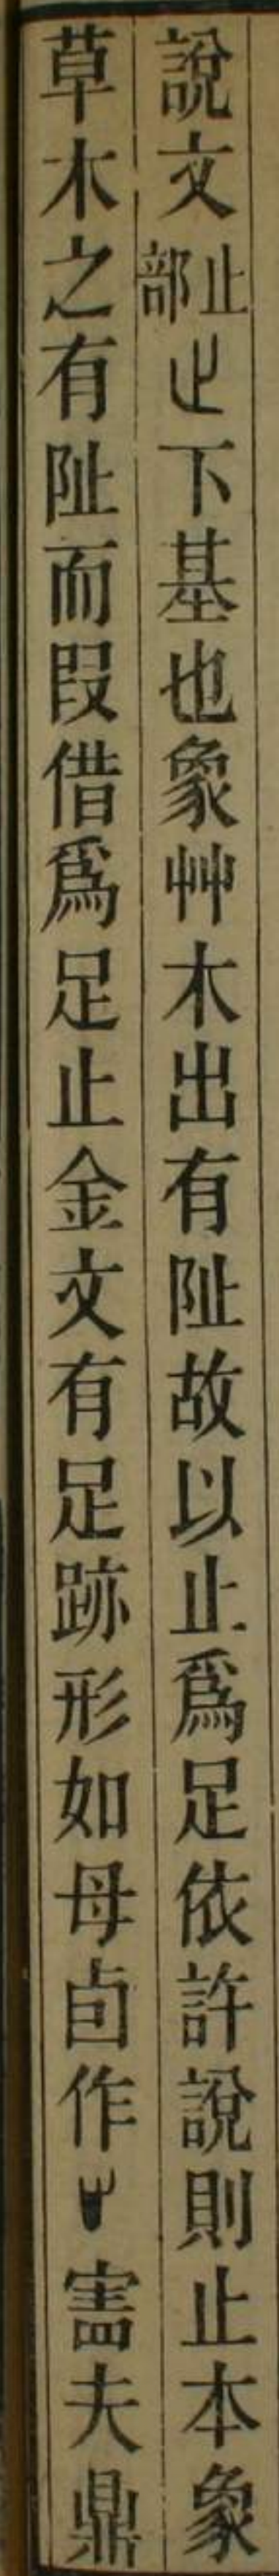 說文止部止下基也象艸木出有阯故以止爲足依許說則止本象
草木之有阯而叚借爲足止金文有足跡形如母卣作𠙵夫鼎